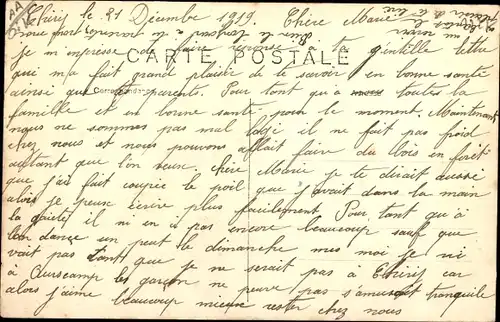 Thiry le 21 Décembre 1919. Chère Marie
je m'impresse de faire reponse à ta gentille lettre
CARTE POSTALE
qui m'a fait grand plaisir de te savoir en bonne santé
Correspondance
ainsi que parents. Pour tant qu'a toutes la
famille et en bonne santé pour le moment. Maintenant
nous ne sommes pas mal logé il ne fait pas froid
chez nous et nous pouvons allait faire du bois en forêt
autant que l'on veux. Chère Marie je te dirait aussi
que j'ai fait coupée le poil que j'avait dans la main
alors je peux écrire plus facilement Pour tant qu'à
la gaieté il ni en a pas encore beaucoup sauf que
l'on danse un peut le dimanche mes moi je ni
vait pas tant que je ne serait pas à Thiry car
à Ourscamp les garçon ne peuve pas s'amuset tranquile
alors j'aime beaucoup mieux rester chez nous